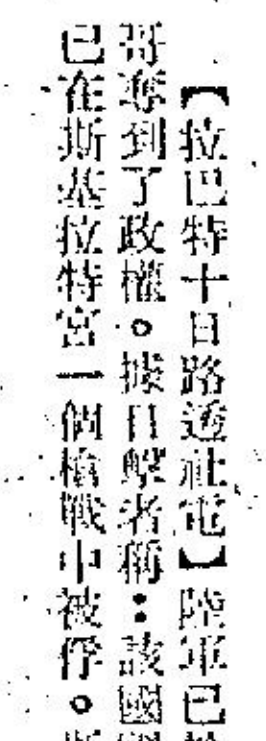 【拉巴特十日路透社電】陸軍已
哥奪到了政權。據目擊者稱：該國
已在斯基拉特宮一個槍戰中被俘。